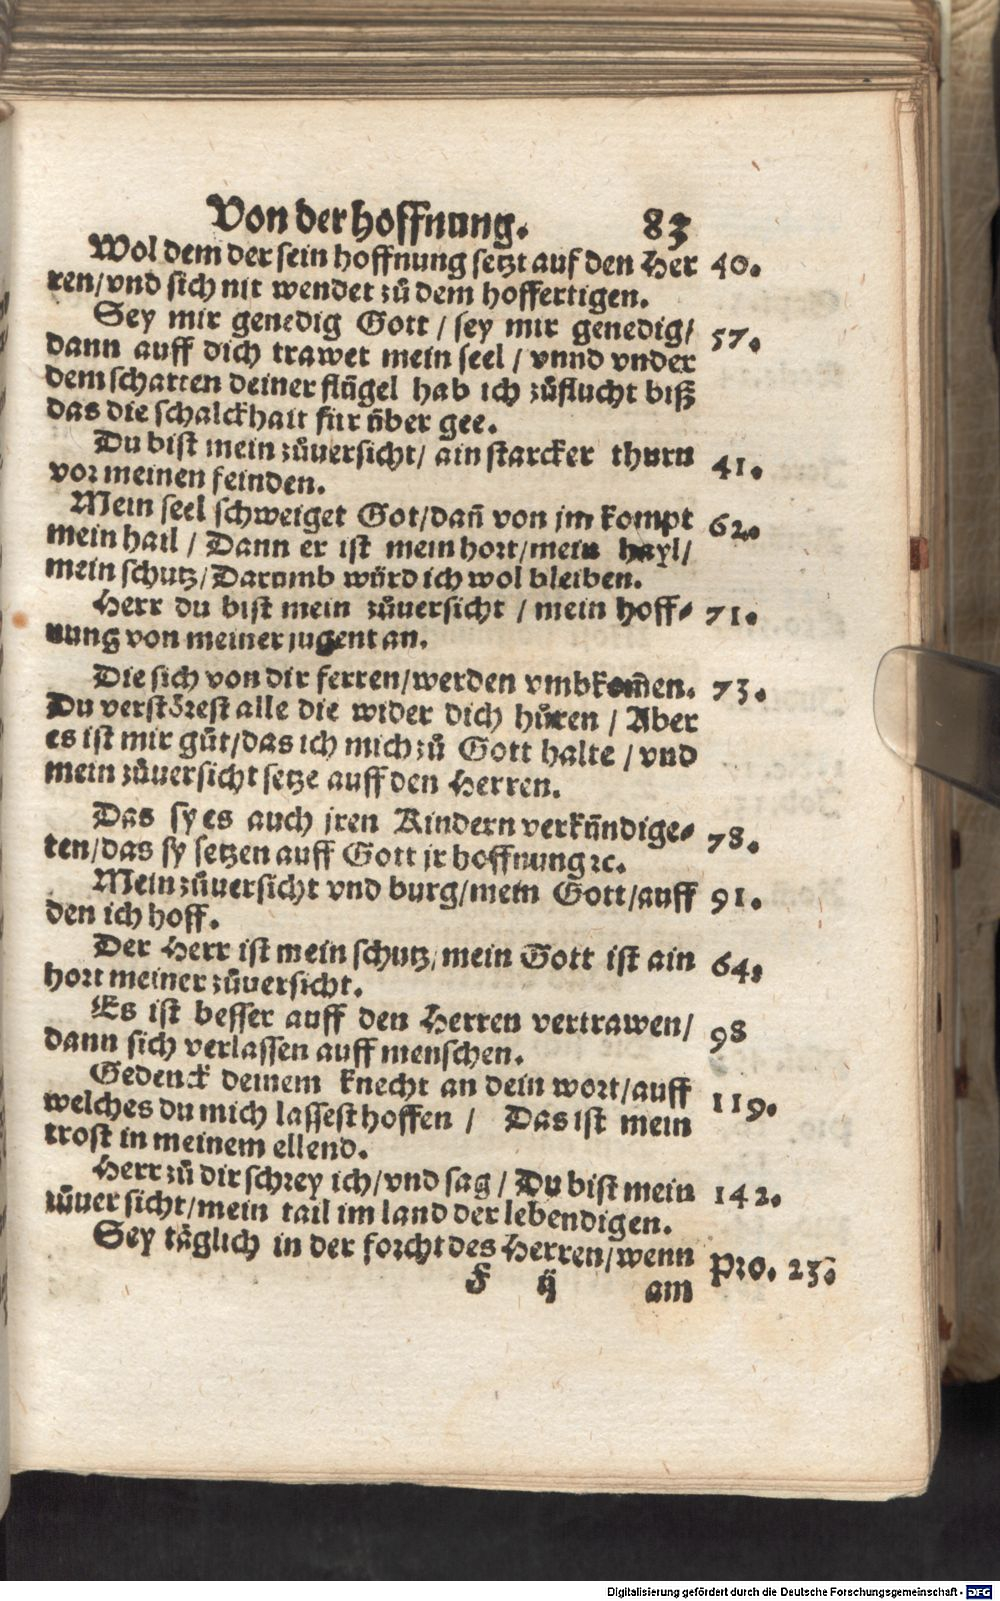 Von der hoffnung. 83
Wol dem der sein hoffnung setzt auf den Her 40.
ren/vnd sich nit wendet zů dem hoffertigen.
Sey mir genedig Gott / sey mir genedig/ 57.
dann auff dich trawet mein seel / vnnd vnder
dem schatten deiner flügel hab ich zůflucht biß
das die schalckhait für über gee.
Du bist mein zůuersicht/ ain starcker thurn 41.
vor meinen feinden.
Mein seel schweiget Got/dañ von jm kompt 62.
mein hail / Dann er ist mein hort/mein hayl/
mein schutz/Darumb würd ich wol bleiben.
Herr du bist mein zůuersicht / mein hoff- 71.
nung von meiner jugent an.
Die sich von dir ferren/werden vmbkom̃en. 73.
Du verstörest alle die wider dich hůren / Aber
es ist mir gůt/das ich mich zů Gott halte / vnd
mein zůuersicht setze auff den Herren.
Das sy es auch jren Kindern verkündige- 78.
ten/das sy setzen auff Gott jr hoffnung ꝛc.
Mein zůuersicht vnd burg/mein Gott/auff 91.
den ich hoff.
Der Herr ist mein schutz/mein Gott ist ain 64.
hort meiner zůuersicht.
Es ist besser auff den Herren vertrawen/ 98
dann sich verlassen auff menschen.
Gedenck deinem knecht an dein wort/auff 119.
welches du mich lassest hoffen / Das ist mein
trost in meinem ellend.
Herr zů dir schrey ich/vnd sag / Du bist mein 142.
zůuersicht/mein tail im land der lebendigen.
Sey täglich in der forcht des Herren/wenn Pro. 23.
F ij am
Digitalisierung gefördert durch die Deutsche Forschungsgemeinschaft - DFG